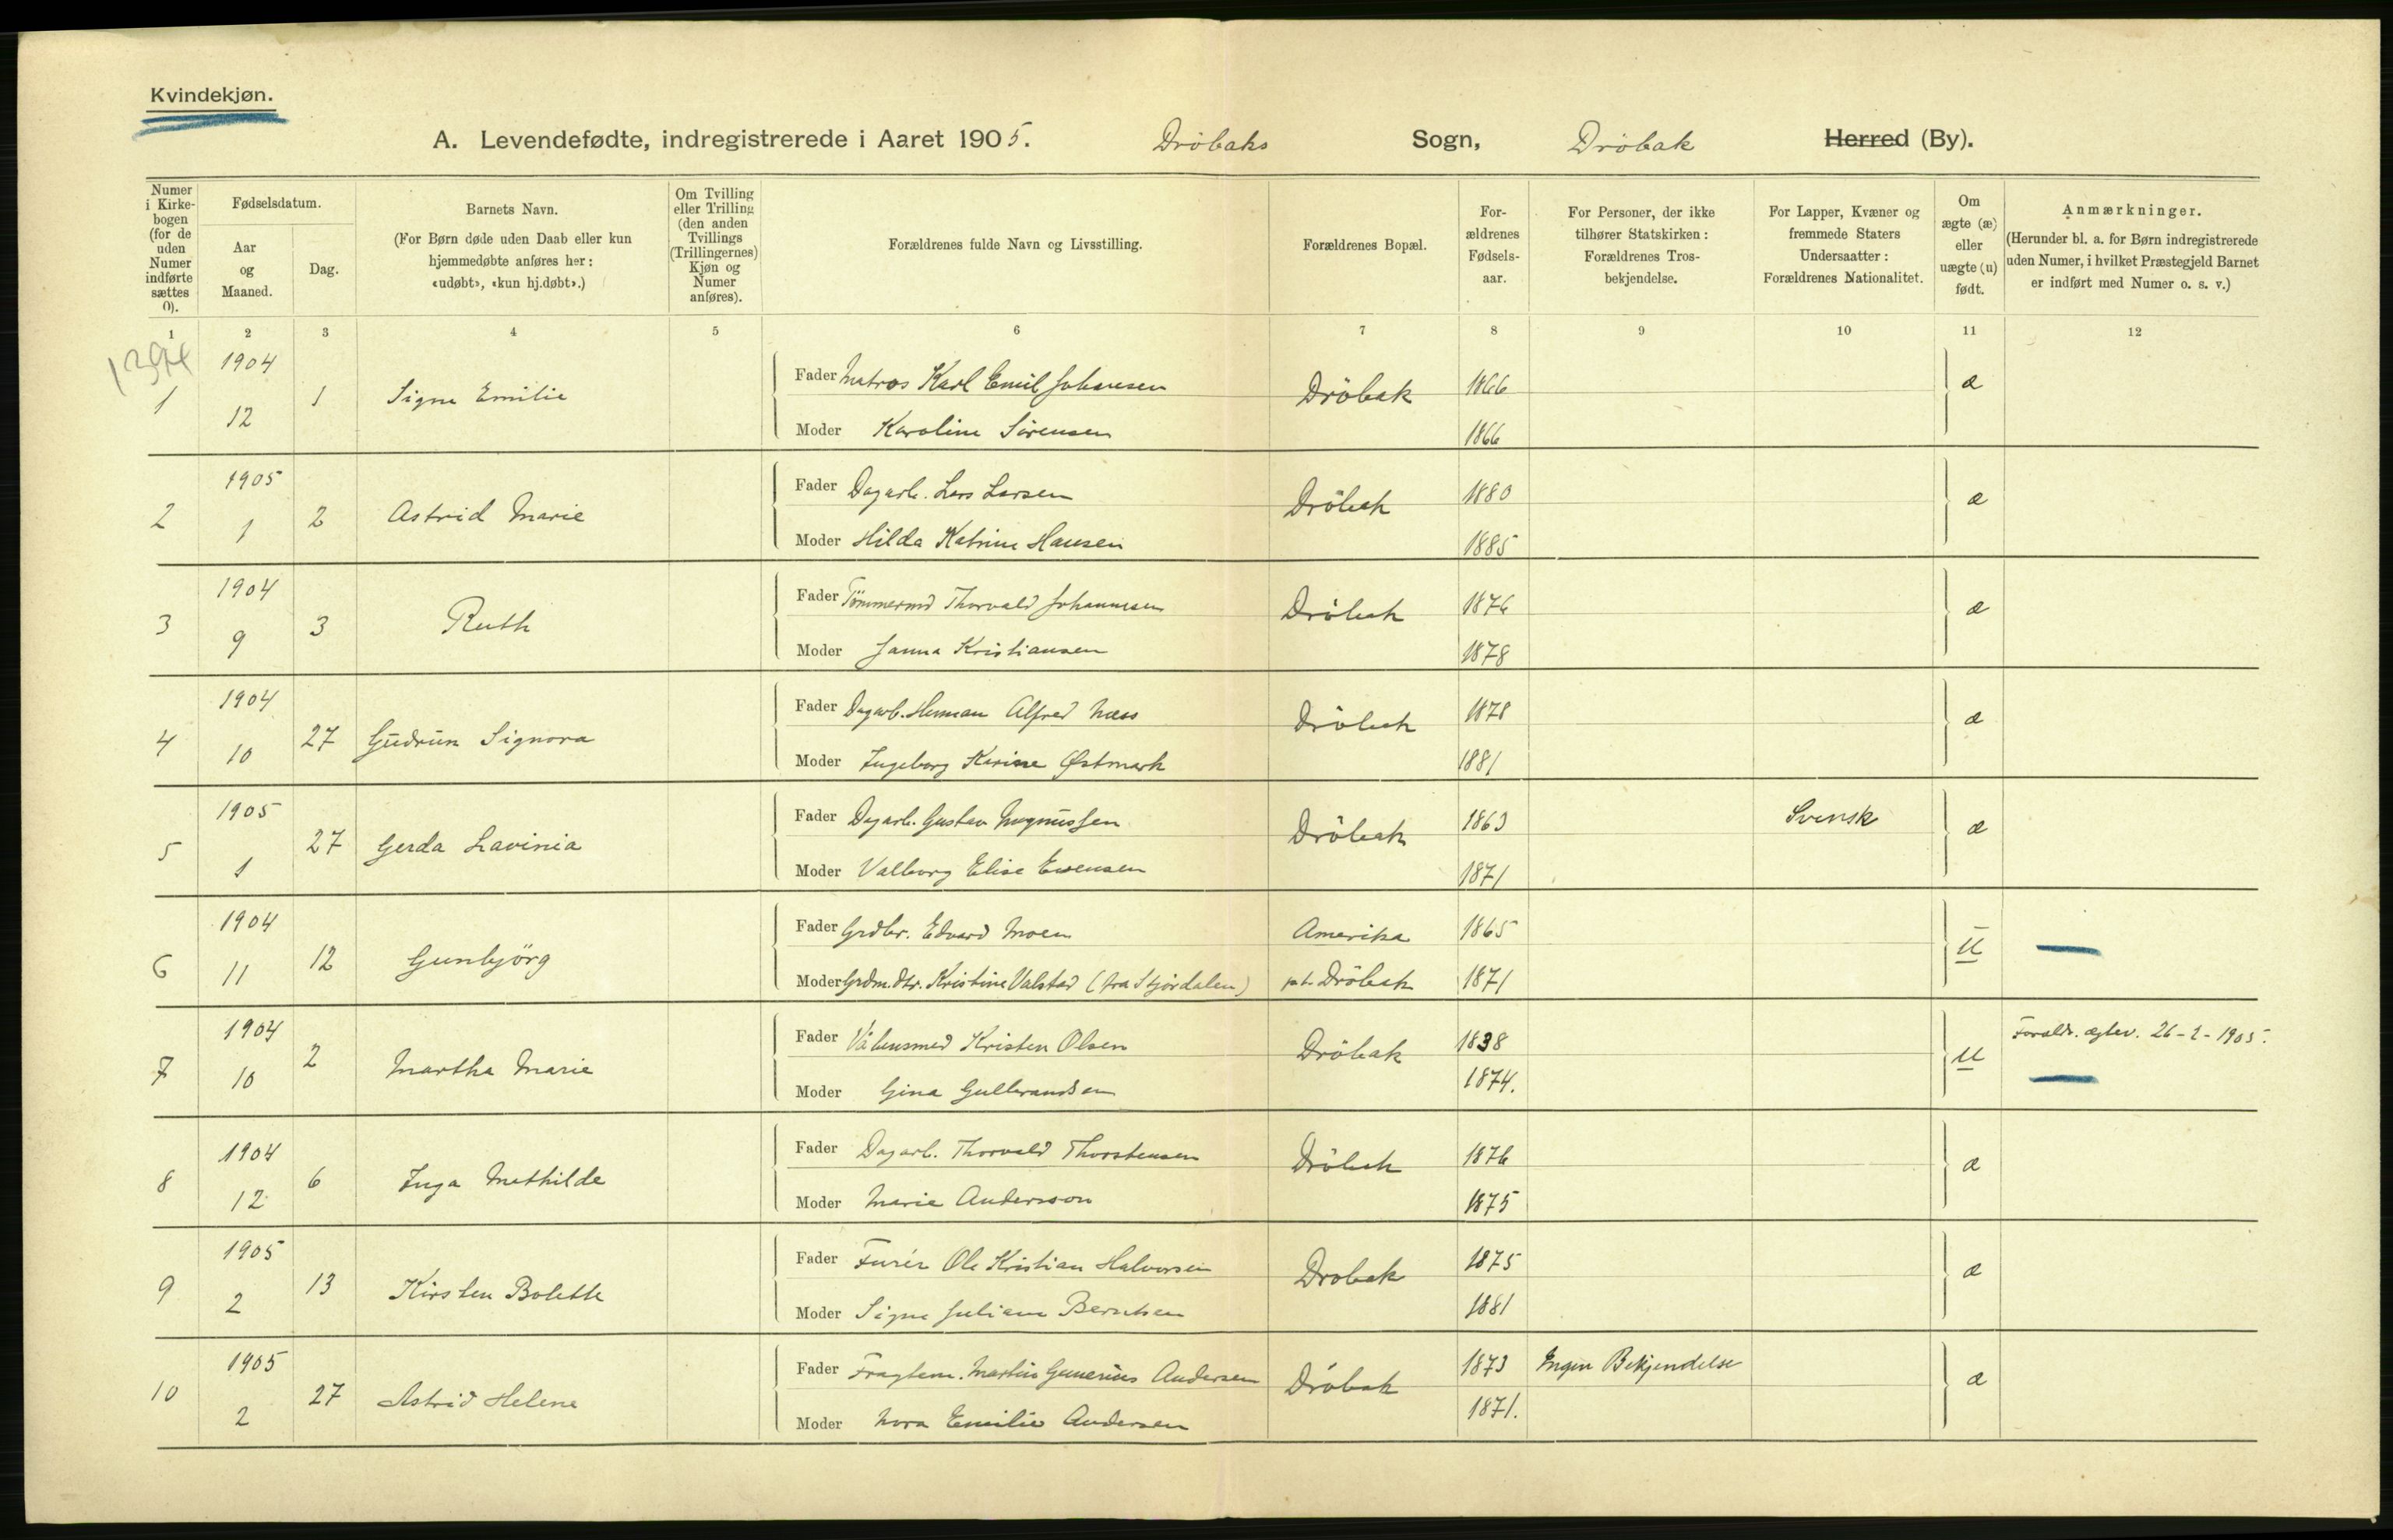 Kvindekjøn.
A. Levendefødte, indregistrerede i Aaret 1905. Dröbaks Sogn, Dröbak Herred (By).
Numer i Kirkebogen (for de uden Numer indførte sættes 0).
Fødselsdatum.
Aar og Maaned.
Dag.
Barnets Navn.
(For Børn døde uden Daab eller kun hjemmedøbte anføres her: «udøbt», «kun hj.døbt».)
Om Tvilling eller Trilling (den anden Tvillings (Trillingernes) Kjøn og Numer anføres).
Forældrenes fulde Navn og Livsstilling.
Forældrenes Bopæl.
Forældrenes Fødselsaar.
For Personer, der ikke tilhører Statskirken: Forældrenes Trosbekjendelse.
For Lapper, Kvæner og fremmede Staters Undersaatter: Forældrenes Nationalitet.
Om ægte (æ) eller uægte (u) født.
Anmærkninger.
(Herunder bl. a. for Børn indregistrerede uden Numer, i hvilket Præstegjeld Barnet er indført med Numer o. s. v.)
1 2 3 4 5 6 7 8 9 10 11 12
1394
1 1904 12 1 Signe Emilie Fader Matros Karl Emil Johansen Dröbak 1866 æ
Moder Karoline Sörensen 1866
2 1905 1 2 Astrid Marie Fader Dagarb. Lars Larsen Dröbak 1880 æ
Moder Hilda Katrine Hansen 1885
3 1904 9 3 Ruth Fader Tömmermd Thorvald Johannesen Dröbak 1876 æ
Moder Janna Kristiansen 1878
4 1904 10 27 Gudrun Signora Fader Dagarb. Herman Alfred Næss Dröbak 1878 æ
Moder Ingeborg Karine Østmark 1881
5 1905 1 27 Gerda Lavinia Fader Dagarb. Gustav Magnussen Dröbak 1863 Svensk æ
Moder Valborg Elise Evensen 1871
6 1904 11 12 Gunbjörg Fader Grdbr. Edvard Moen Amerika 1865 u
Moder Grdm.dtr. Kristine Valstad (fra Stjördalen) pt. Dröbak 1871
7 1904 10 2 Martha Marie Fader Kristen Olsen Dröbak 1838 u Foreldr. ægtev. 26-2-1905.
Moder Gina Gulbrandsen 1874.
8 1904 12 6 Inga Mathilde Fader Dagarb. Thorvald Thorstensen Dröbak 1876 æ
Moder Marie Andersson 1875
9 1905 2 13 Kirsten Bolette Fader Furér Ole Kristian Halvorsen Drobak 1875 æ
Moder Signe Juliane Berntsen 1881
10 1905 2 27 Astrid Helene Fader Fragtem. Martin Gunerius Andersen Dröbak 1873 Ingen Bekjendelse æ
Moder Nora Emilie Andersen 1871.